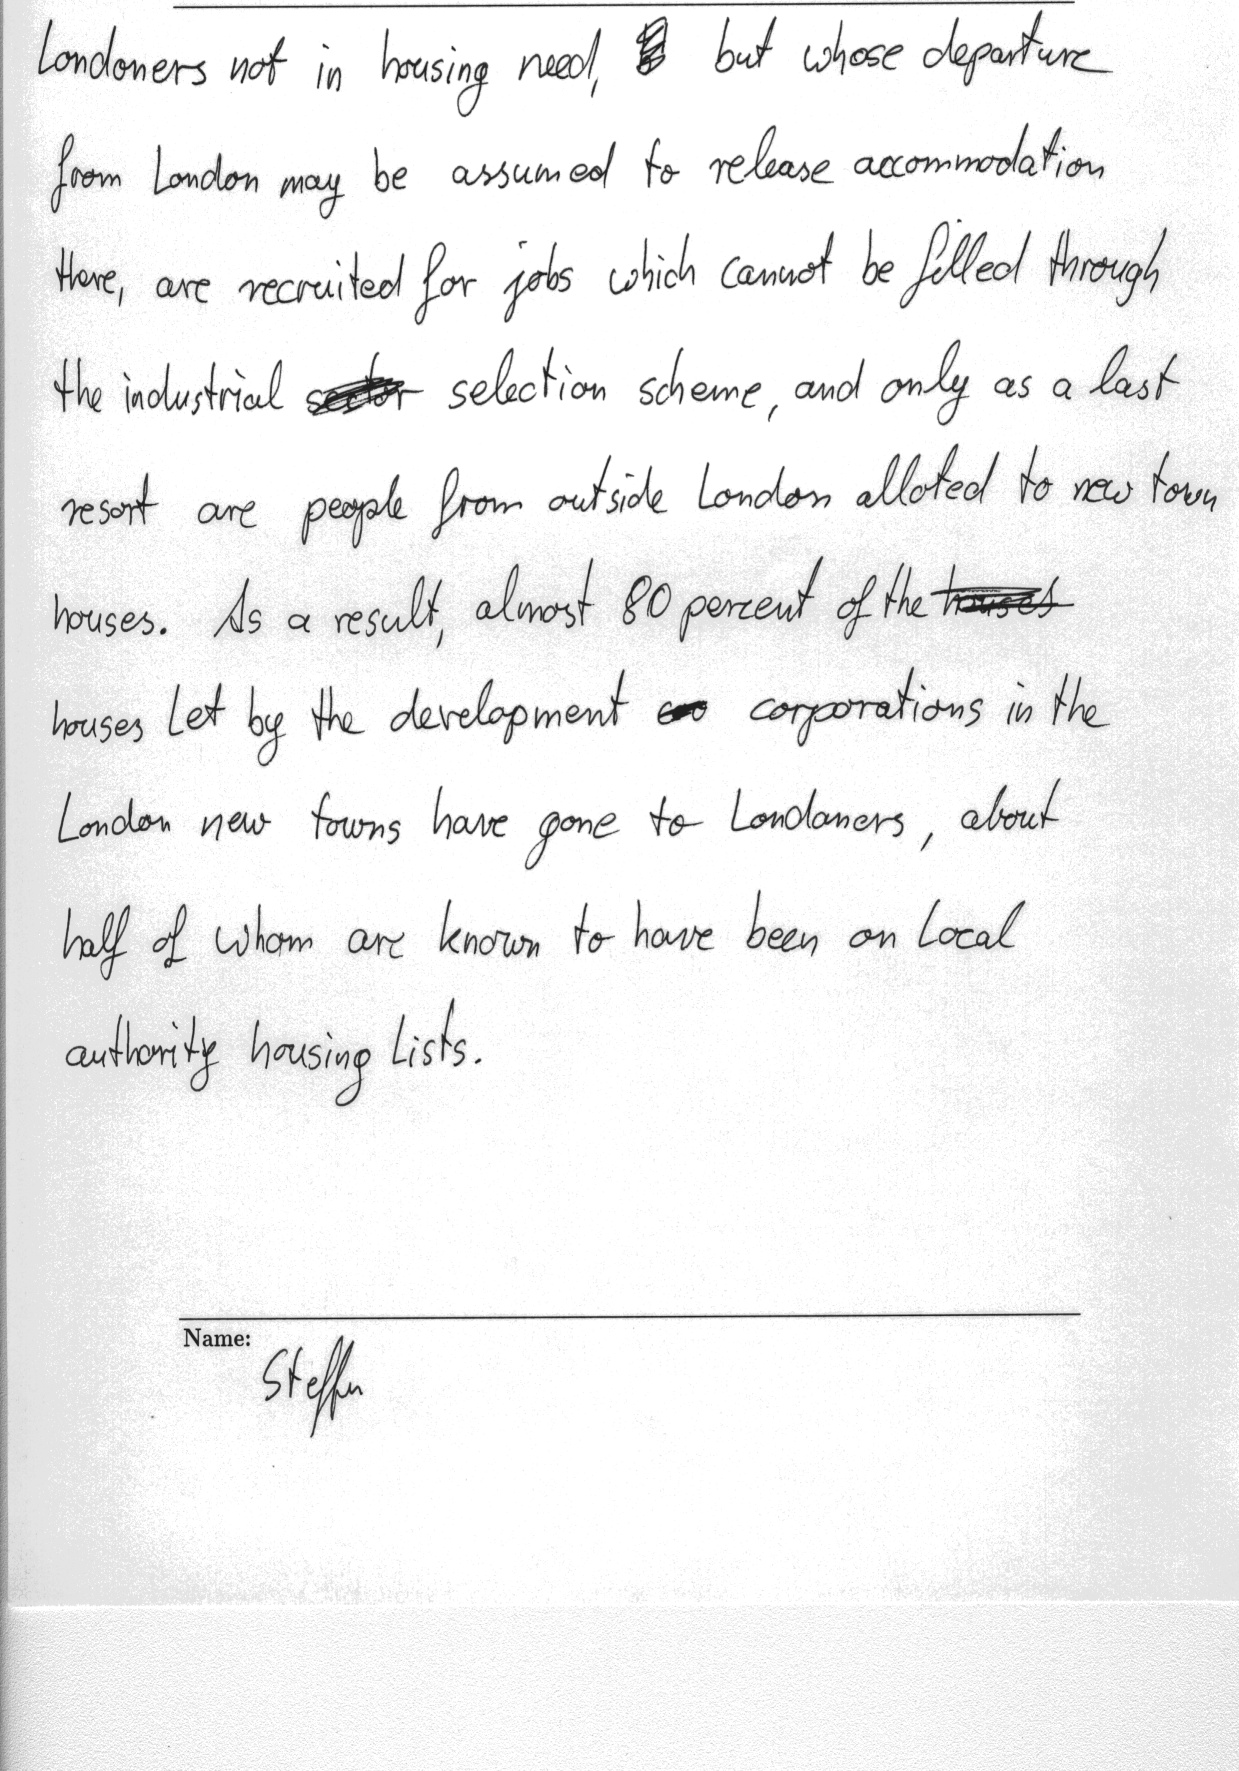 Londoners not in housing need, but whose departure
from London may be assumed to release accommodation
there, are recruited for jobs which cannot be filled through
the industrial selection scheme, and only as a last
resort are people from outside London alloted to new town
houses. As a result, almost 80 percent of the houses
houses let by the development corporations in the
London new towns have gone to Londoners, about
half of whom are known to have been on local
authority housing lists.
Name:
Steffen